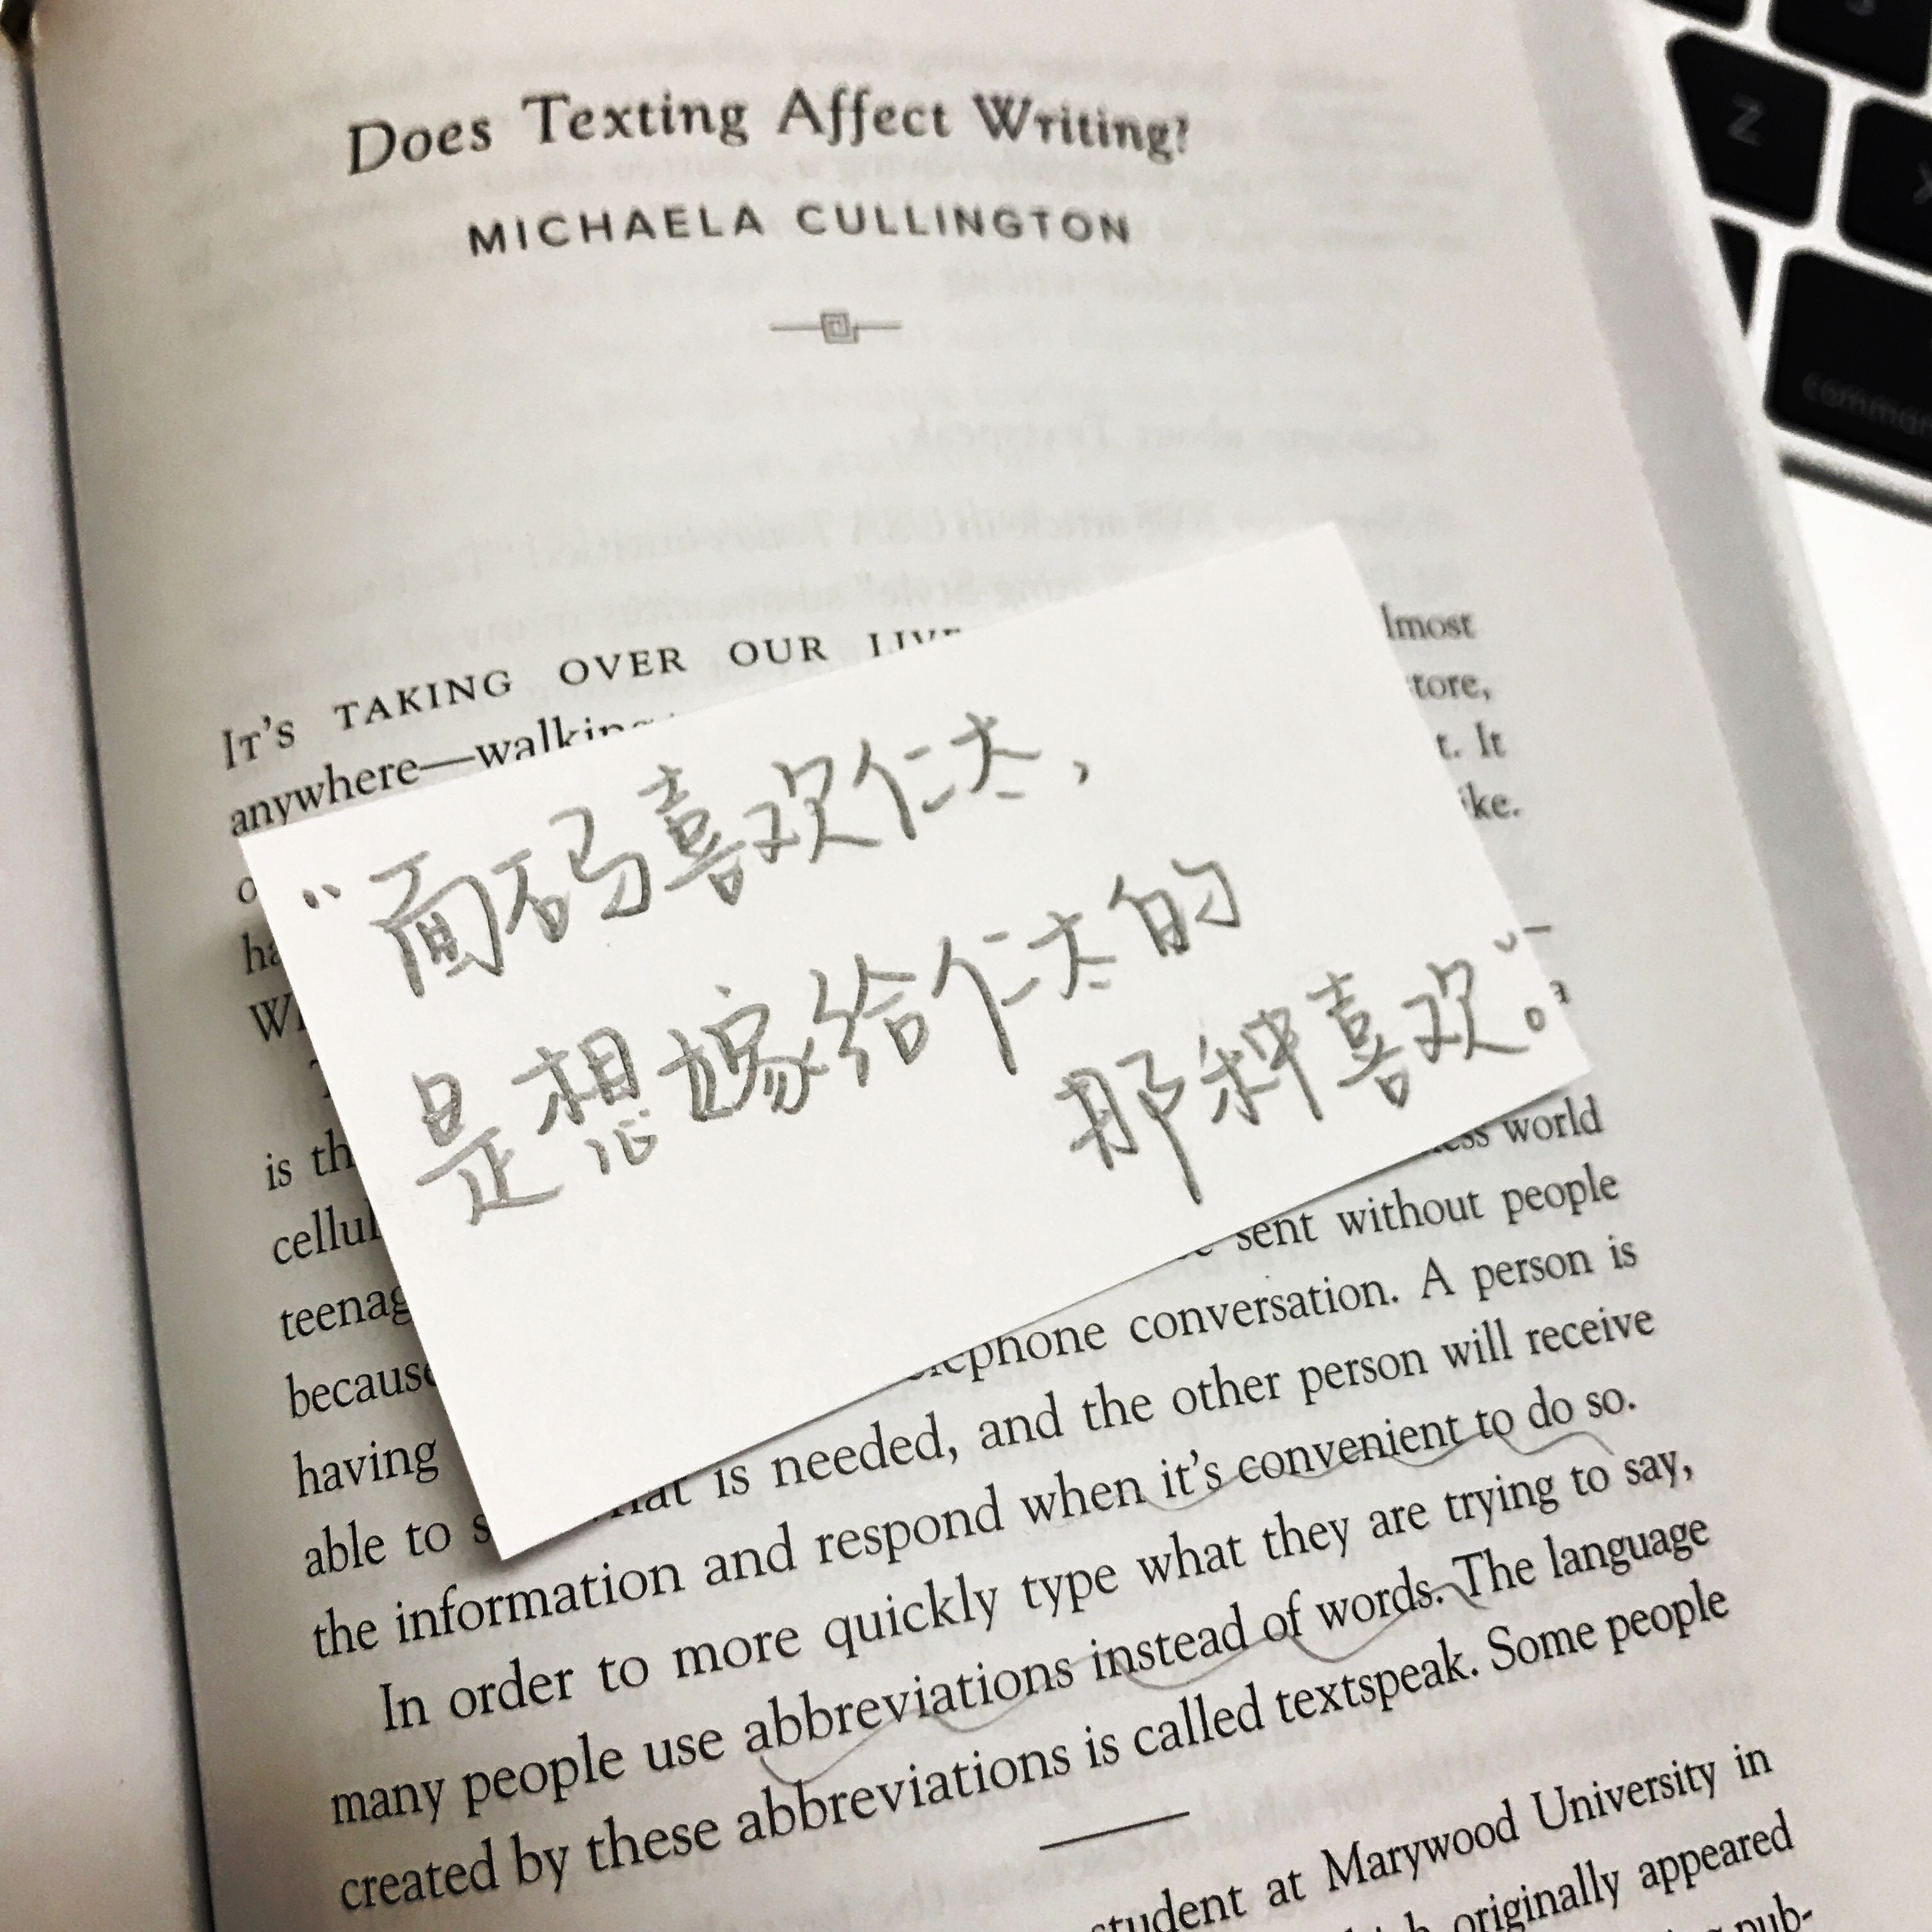 Does Texting Affect Writing?
MICHAELA CULLINGTON
IT'S TAKING OVER OUR
lmost
anywhere—walking
tore,
t. It
ke.
“面码喜欢仁太，
是想嫁给仁太的
那种喜欢。”
is th
world
cellul
sent without people
teenag
ephone conversation. A person is
because
is needed, and the other person will receive
having
able to s
the information and respond when it's convenient to do so.
In order to more quickly type what they are trying to say,
many people use abbreviations instead of words. The language
created by these abbreviations is called textspeak. Some people
student at Marywood University in
originally appeared
pub-
Z
X
comman